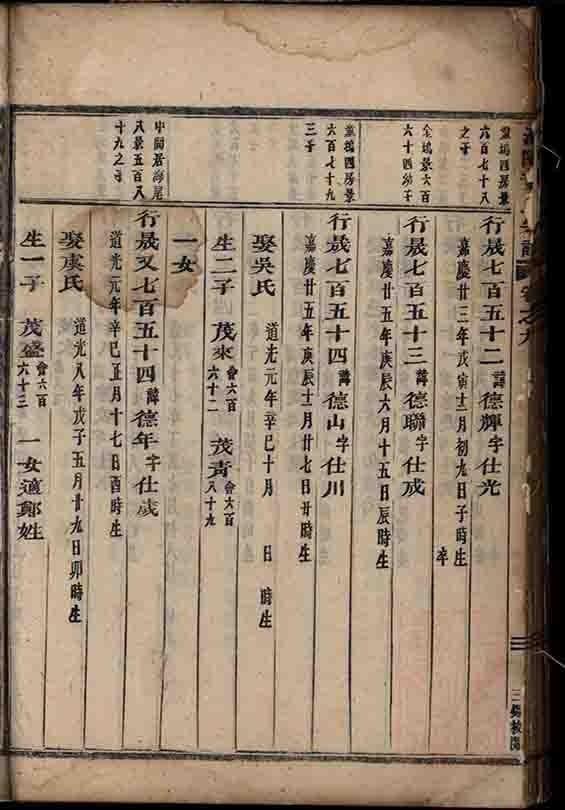 卷之九
黨塢四房景
六百七十八
之子
行晟七百五十二諱德輝字仕光
嘉慶廿三年戊寅十二月初九日子時生
卒
金塢景六百
六十四幼子
行晟七百五十三諱德聯字仕成
嘉慶廿五年庚辰六月十五日辰時生
黨塢四房景
六百七十九
三子
行晟七百五十四諱德山字仕川
嘉慶廿五年庚辰十二月廿七日廿時生
娶吳氏
道光元年辛巳十月 日 時生
生二子 茂來會六百六十二 茂青會六百八十九
一女
中閭居海尾
八景五百八
十九之子
行晟又七百五十四諱德年字仕歲
道光元年辛巳正月十七日酉時生
娶虞氏
道光八年戊子五月廿九日卯時生
生一子 茂盛會六百六十三 一女適鄭姓